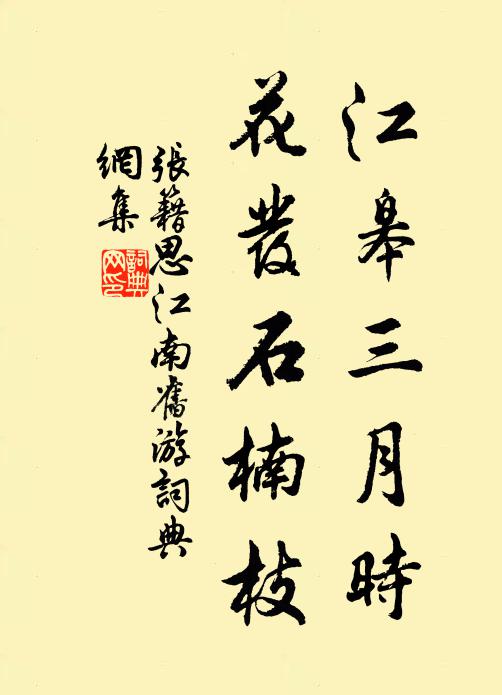 江皋三月時
花發石楠枝
張籍思江南舊游詞典
網集
詞典
网印